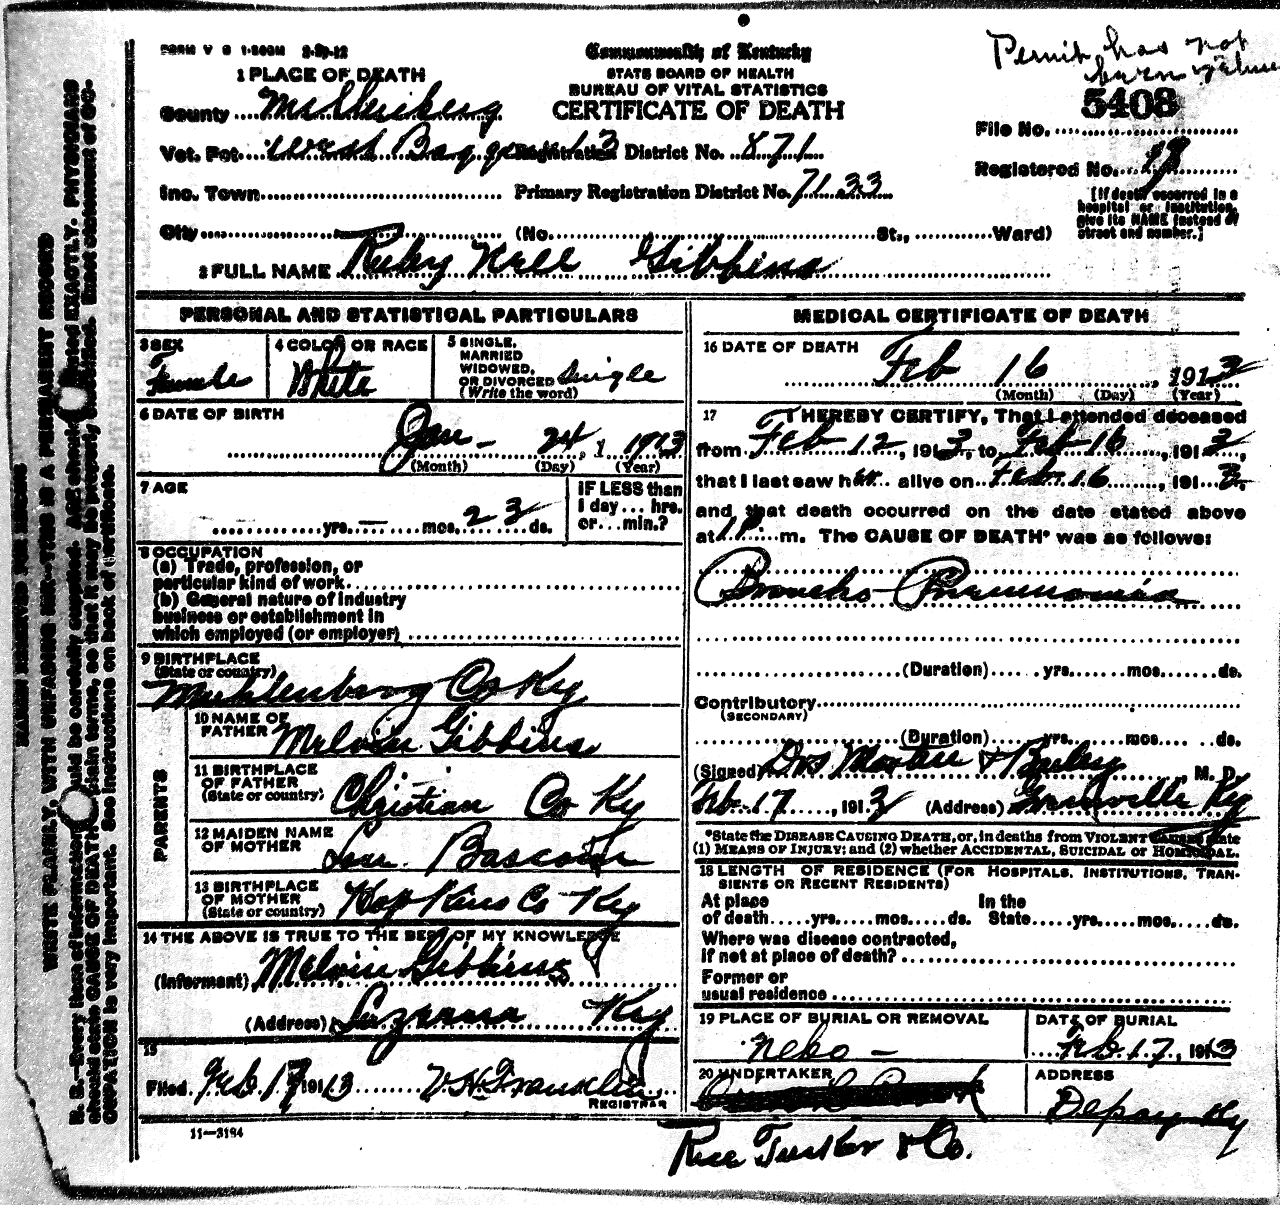 FORM V S 1-500M 2-20-12
Commonwealth of Kentucky
STATE BOARD OF HEALTH
BUREAU OF VITAL STATISTICS
CERTIFICATE OF DEATH
Permit has not
been
5408
File No.
Registered No. 18
[If death occurred in a
hospital or institution,
give its NAME instead of
street and number.]
1 PLACE OF DEATH
County Muhlenberg
Vot. Pct. West Registration District No. 871
Inc. Town Primary Registration District No. 7133
City (No. St., Ward)
2 FULL NAME Ruby Nell Gibbins
PERSONAL AND STATISTICAL PARTICULARS
3 SEX
Female
4 COLOR OR RACE
White
5 SINGLE,
MARRIED
WIDOWED,
OR DIVORCED Single
(Write the word)
6 DATE OF BIRTH
Jan - 24, 1 1913
(Month) (Day) (Year)
7 AGE
yrs. — mos. 23 ds.
IF LESS than
1 day ... hrs.
or ... min.?
8 OCCUPATION
(a) Trade, profession, or
particular kind of work
(b) General nature of industry
business or establishment in
which employed (or employer)
9 BIRTHPLACE
(State or country)
Muhlenberg Co Ky
PARENTS
10 NAME OF
FATHER Melvin Gibbins
11 BIRTHPLACE
OF FATHER
(State or country) Christian Co Ky
12 MAIDEN NAME
OF MOTHER Lou. Bascom
13 BIRTHPLACE
OF MOTHER
(State or country) Hopkins Co Ky
14 THE ABOVE IS TRUE TO THE BEST OF MY KNOWLEDGE
(Informant) Melvin Gibbins
(Address) Luzerna Ky
15
Filed Feb 17 1913 V. H. Franklin
REGISTRAR
11—3184
MEDICAL CERTIFICATE OF DEATH
16 DATE OF DEATH
Feb 16, 1913
(Month) (Day) (Year)
17 I HEREBY CERTIFY, That I attended deceased
from Feb 12, 1913, to Feb 16, 1913,
that I last saw her alive on Feb. 16, 1913
and that death occurred on the date stated above
at 1 P. m. The CAUSE OF DEATH* was as follows:
Broncho-Pneumonia
(Duration) yrs. mos. ds.
Contributory
(SECONDARY)
(Duration) yrs. mos. ds.
(Signed) Drs & M. D.
Feb. 17, 1913 (Address) Greenville Ky
*State the DISEASE CAUSING DEATH, or, in deaths from VIOLENT CAUSES state
(1) MEANS OF INJURY; and (2) whether ACCIDENTAL, SUICIDAL or HOMICIDAL.
18 LENGTH OF RESIDENCE (FOR HOSPITALS, INSTITUTIONS, TRAN-
SIENTS OR RECENT RESIDENTS)
At place In the
of death yrs. mos. ds. State yrs. mos. ds.
Where was disease contracted,
if not at place of death?
Former or
usual residence
19 PLACE OF BURIAL OR REMOVAL
Nebo -
DATE OF BURIAL
Feb. 17, 1913
20 UNDERTAKER
ADDRESS
Depoy Ky
Rice Tucker & Co.
MARGIN RESERVED FOR BINDING
WRITE PLAINLY, WITH UNFADING INK—THIS IS A PERMANENT RECORD
N. B.—Every item of information should be carefully supplied. AGE should be stated EXACTLY. PHYSICIANS
should state CAUSE OF DEATH in plain terms, so that it may be properly classified. Exact statement of OC-
CUPATION is very important. See instructions on back of certificate.